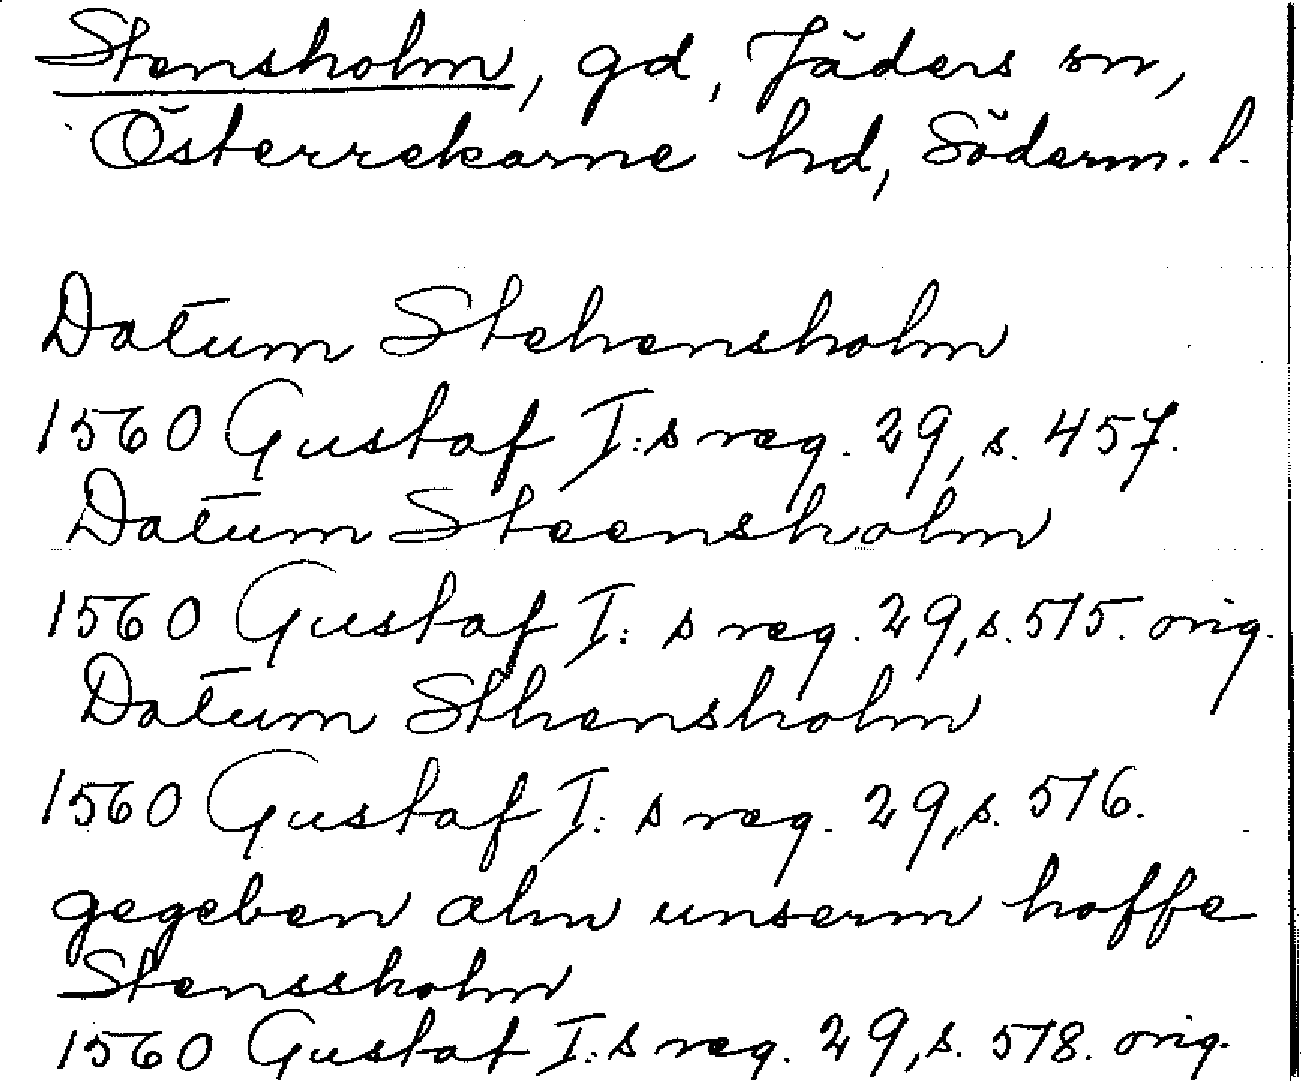 Stensholm, gd, Jäders sn,
Österrekarne hd, Söderm. l.
Datum Stehensholm
1560 Gustaf I:s reg. 29, s. 457.
Datum Steensholm
1560 Gustaf I:s reg. 29, s. 515. orig.
Datum Sthensholm
1560 Gustaf I:s reg. 29, s. 516.
gegeben ahn unserm hoffe
Stenssholm
1560 Gustaf I:s reg. 29, s. 518. orig.